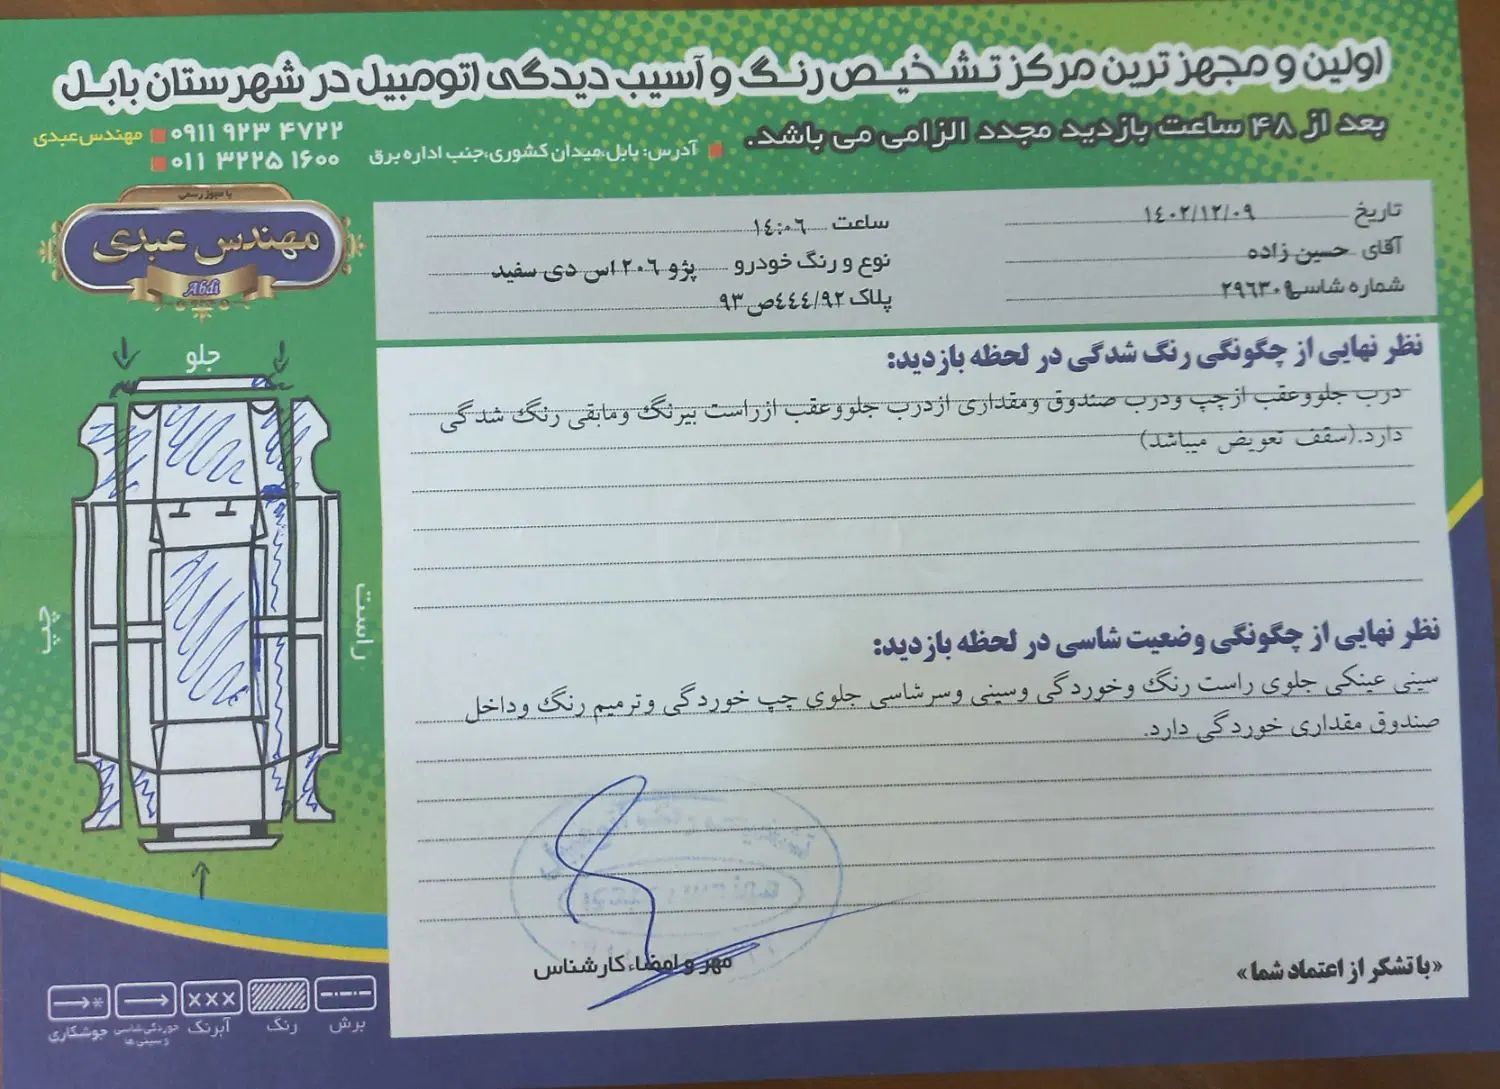 اولین و مجهز ترین مرکز تشخیص رنگ و آسیب دیدگی اتومبیل در شهرستان بابل
بعد از ۴۸ ساعت بازدید مجدد الزامی می باشد.
آدرس: بابل،میدان کشوری،جنب اداره برق
۰۹۱۱ ۹۲۳ ۴۷۲۲ مهندس عبدی
۰۱۱ ۳۲۲۵ ۱۶۰۰
با مجوز رسمی
مهندس عبدی
Abdi
تاریخ ۱٤۰۲/۱۲/۰۹
ساعت ۱٤:۰٦
آقای حسین زاده
نوع و رنگ خودرو پژو ۲۰٦ اس دی سفید
شماره شاسی ۲۹٦۳۰۹
پلاک ٤٤٤/۹۲ص۹۳
نظر نهایی از چگونگی رنگ شدگی در لحظه بازدید:
درب جلووعقب ازچپ ودرب صندوق ومقداری ازدرب جلووعقب ازراست بیرنگ ومابقی رنگ شدگی
دارد.(سقف تعویض میباشد)
نظر نهایی از چگونگی وضعیت شاسی در لحظه بازدید:
سینی عینکی جلوی راست رنگ وخوردگی وسینی وسرشاسی جلوی چپ خوردگی وترمیم رنگ وداخل
صندوق مقداری خوردگی دارد.
مهر و امضاء کارشناس
«با تشکر از اعتماد شما»
جلو
چپ
راست
برش
رنگ
xxx
آبرنگ
خوردگی شاسی
و سینی ها
جوشکاری